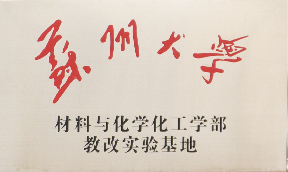 蘇州大學
材料与化学化工学部
教改实验基地